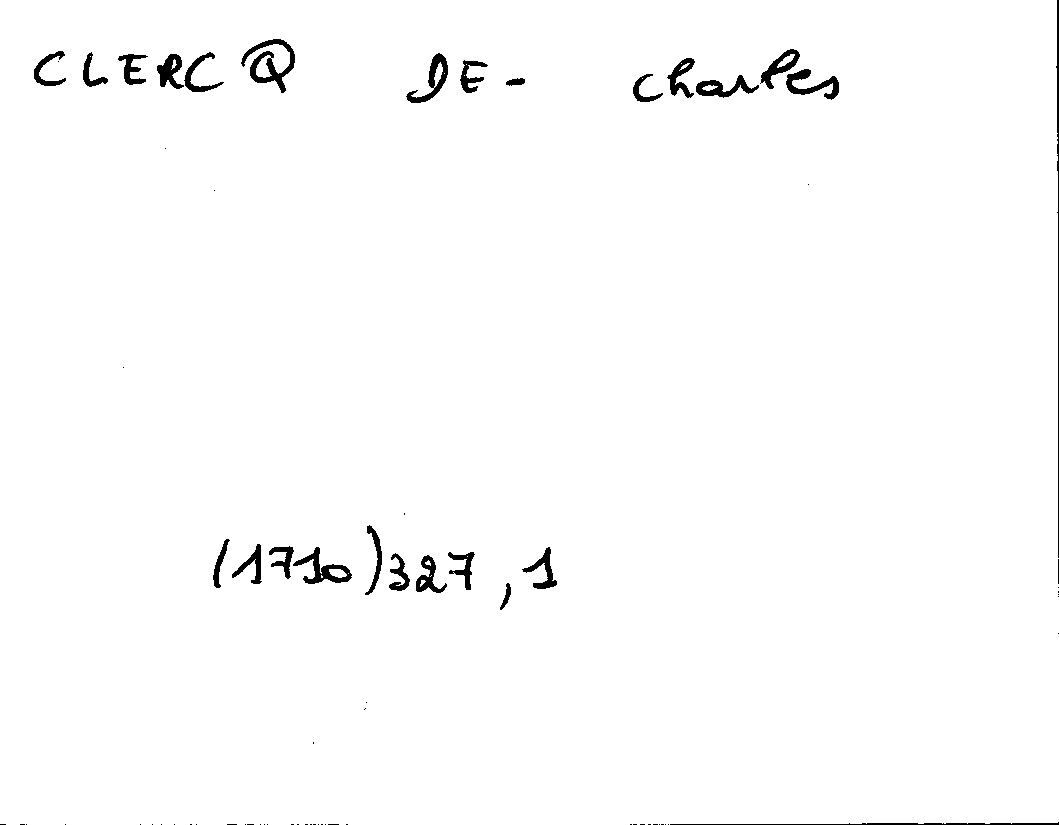 CLERCQ DE- Charles
(1710)327,1